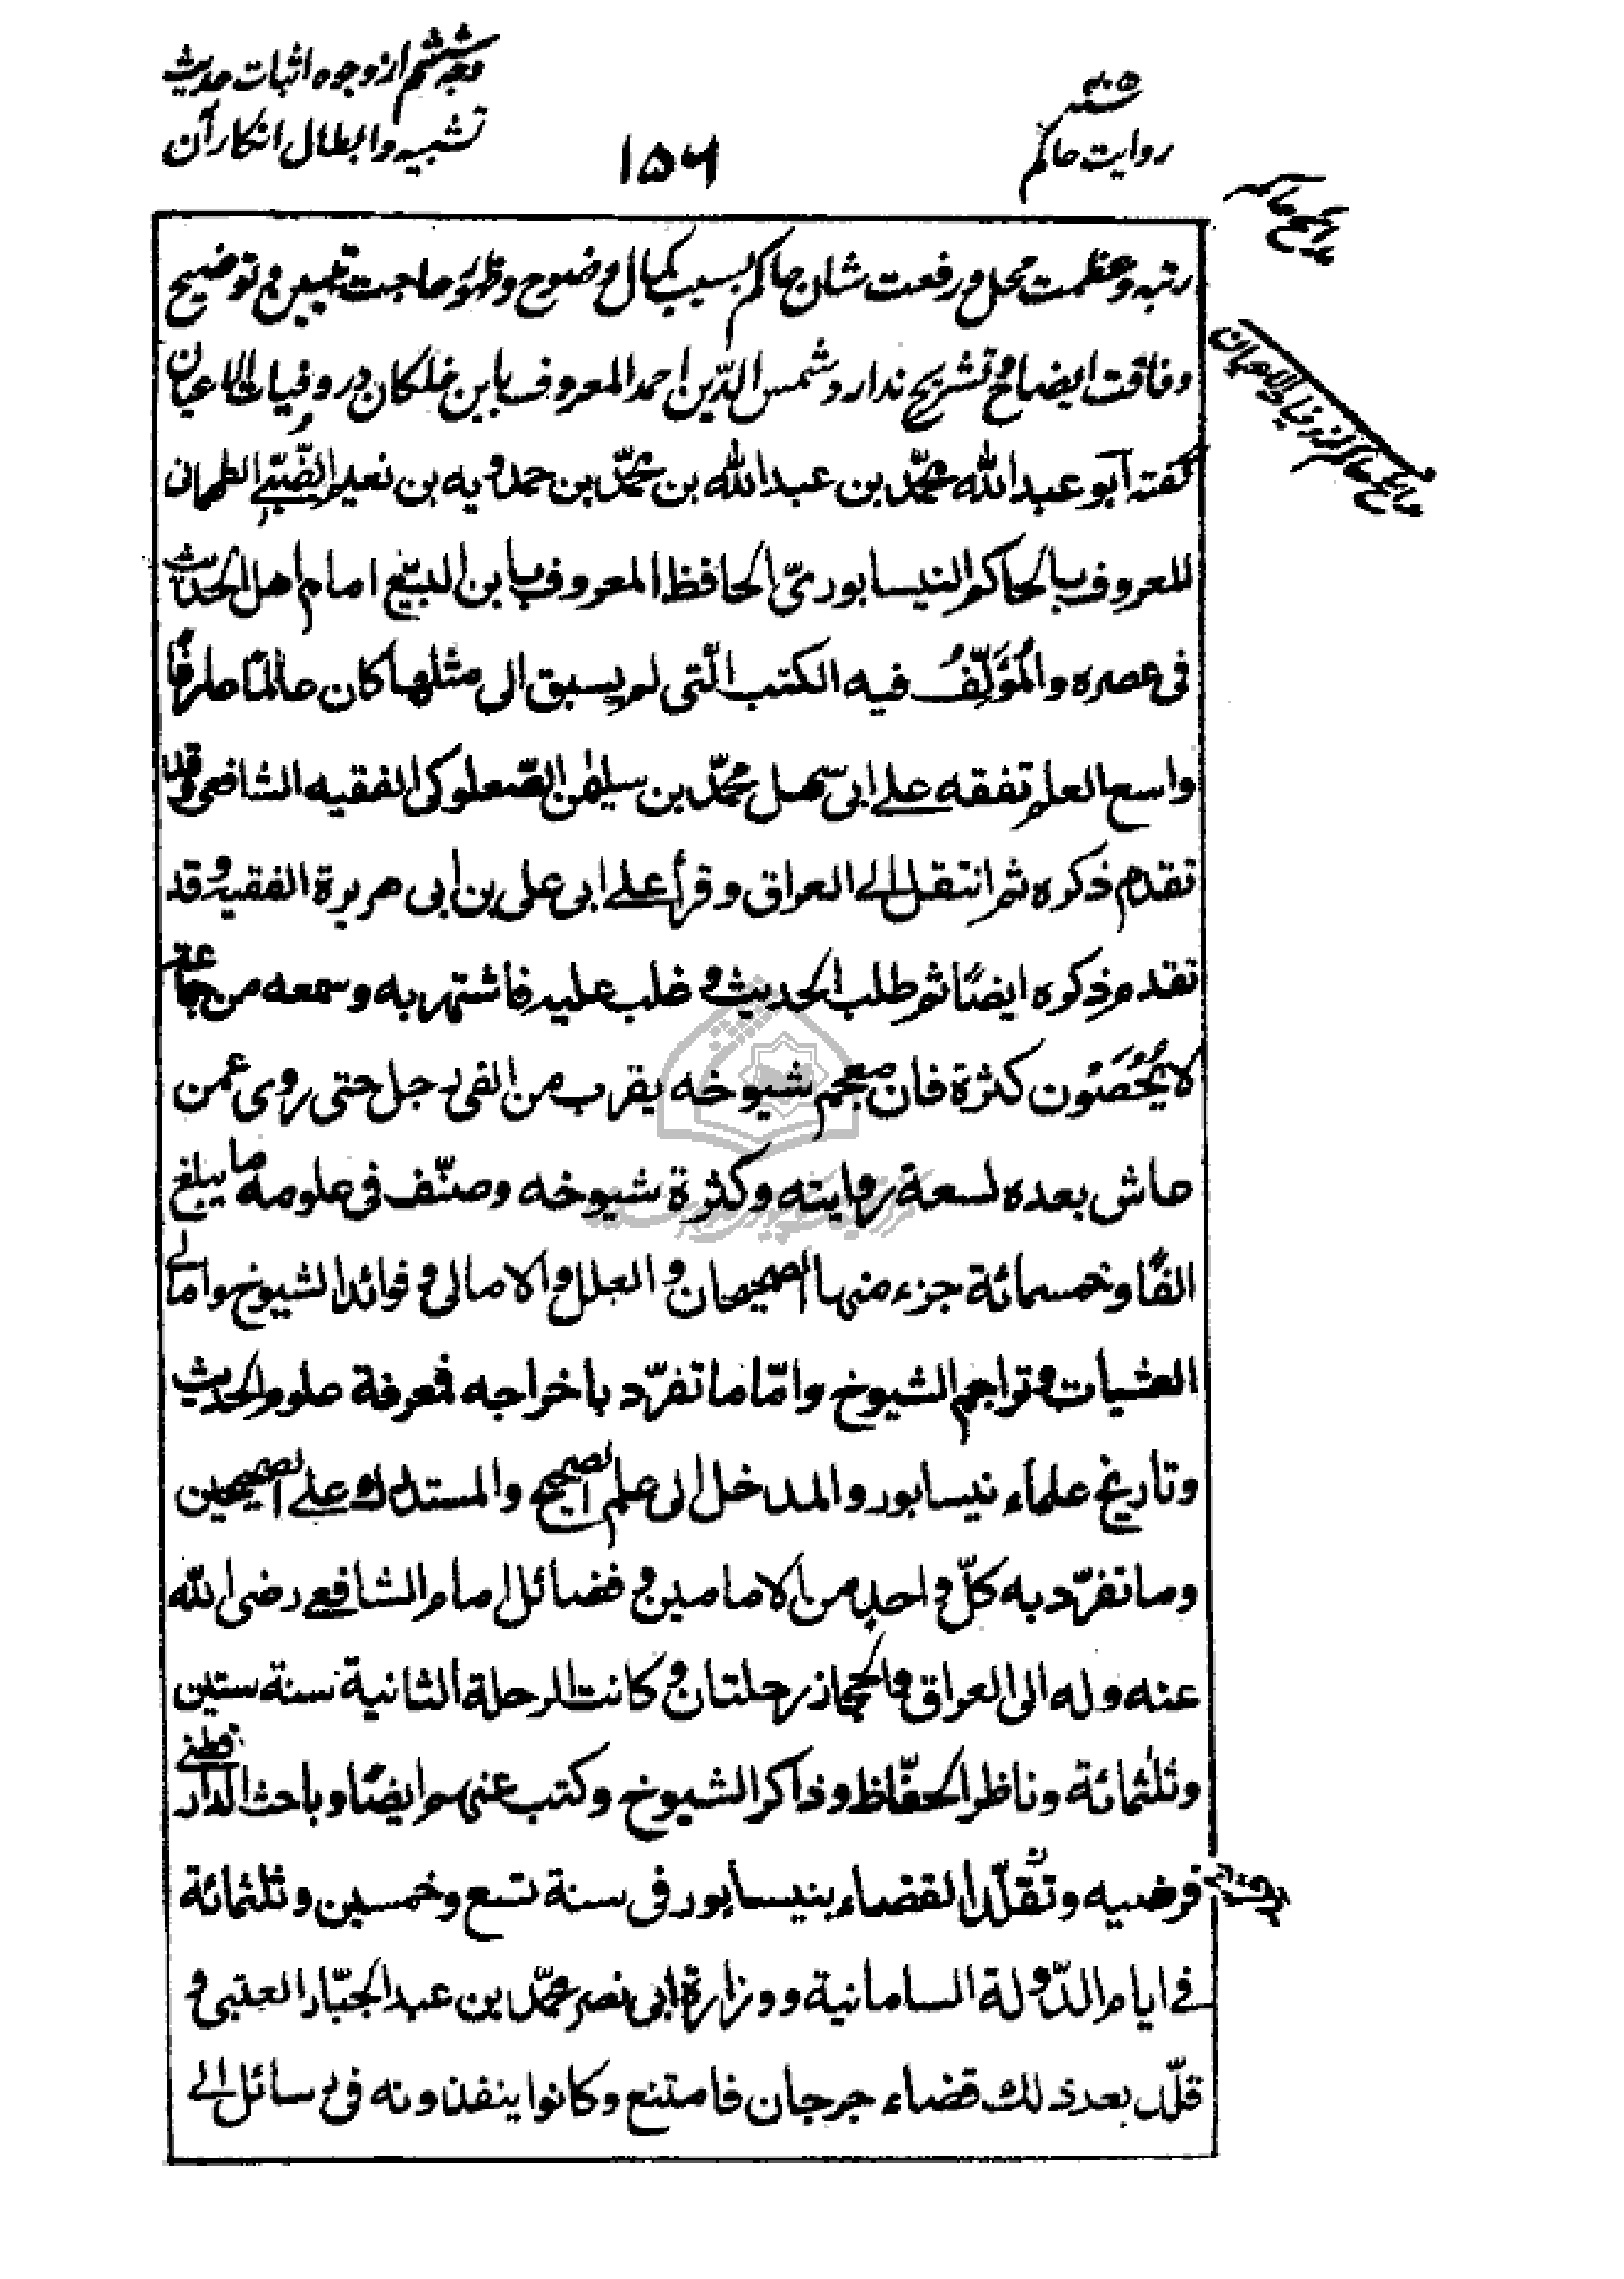 وجه ششم از وجوه اثبات حدیث
تشبیه و ابطال انکار آن
۱۵۶
تتمه
روایت حاکم
مدایح حاکم
مدایح حاکم از وفیات الاعیان
رتبه و عظمت محل و رفعت شان حاکم بسبب کمال وضوح و ظهور حاجت تبیین و توضیح
و فاقت ایضاح و تشریح ندارد و شمس الدّین احمد المعروف بابن خلکان در وفیات الاعیان
گفته ابو عبد الله محمّد بن عبد الله بن محمّد بن حمدویه بن نعیم الضّبّی الطهمانی
المعروف بالحاکم النیسابوریّ الحافظ المعروف بابن البیّع امام اهل الحدیث
فی عصره والمُؤَلِّفُ فیه الکتب الّتی لم یسبق الی مثلها کان عالمًا عارفًا
واسع العلم تفقه علی ابی سهل محمّد بن سلیمٰن الصّعلوکی الفقیه الشافعی وقد
تقدم ذکره ثم انتقل الی العراق وقرأ علی ابی علی بن ابی هریرة الفقیه وقد
تقدم ذکره ایضًا ثم طلب الحدیث و غلب علیه فاشتهر به وسمعه من جماعة
لا یُحْصَوْن کثرة فان معجم شیوخه یقرب من الفی رجل حتی روی عمن
عاش بعده لسعة روایته وکثرة شیوخه وصنّف فی علومه ما یبلغ
الفًا وخمسمائة جزء منها الصحیحان والعلل والامالی وفوائد الشیوخ وامالی
العشیات وتراجم الشیوخ وامّا ما تفرّد باخراجه فمعرفة علوم الحدیث
وتاریخ علماء نیسابور والمدخل الی علم الصحیح والمستدرک علی الصحیحین
وما تفرّد به کلّ واحد من الامامین وفضائل امام الشافعی رضی الله
عنه وله الی العراق والحجاز رحلتان وکانت الرحلة الثانیة سنة ستین
وثلثمائة وناظر الحفّاظ وذاکر الشیوخ وکتب عنهم ایضًا وباحث الدار قطنی
فرضیه وتقلّد القضاء بنیسابور فی سنة تسع وخمسین وثلثمائة
فی ایام الدّولة السامانیة ووزارة ابی نصر محمّد بن عبد الجبّار العتبی و
قلّد بعد ذلک قضاء جرجان فامتنع وکانوا ینفذونه فی رسائل الی